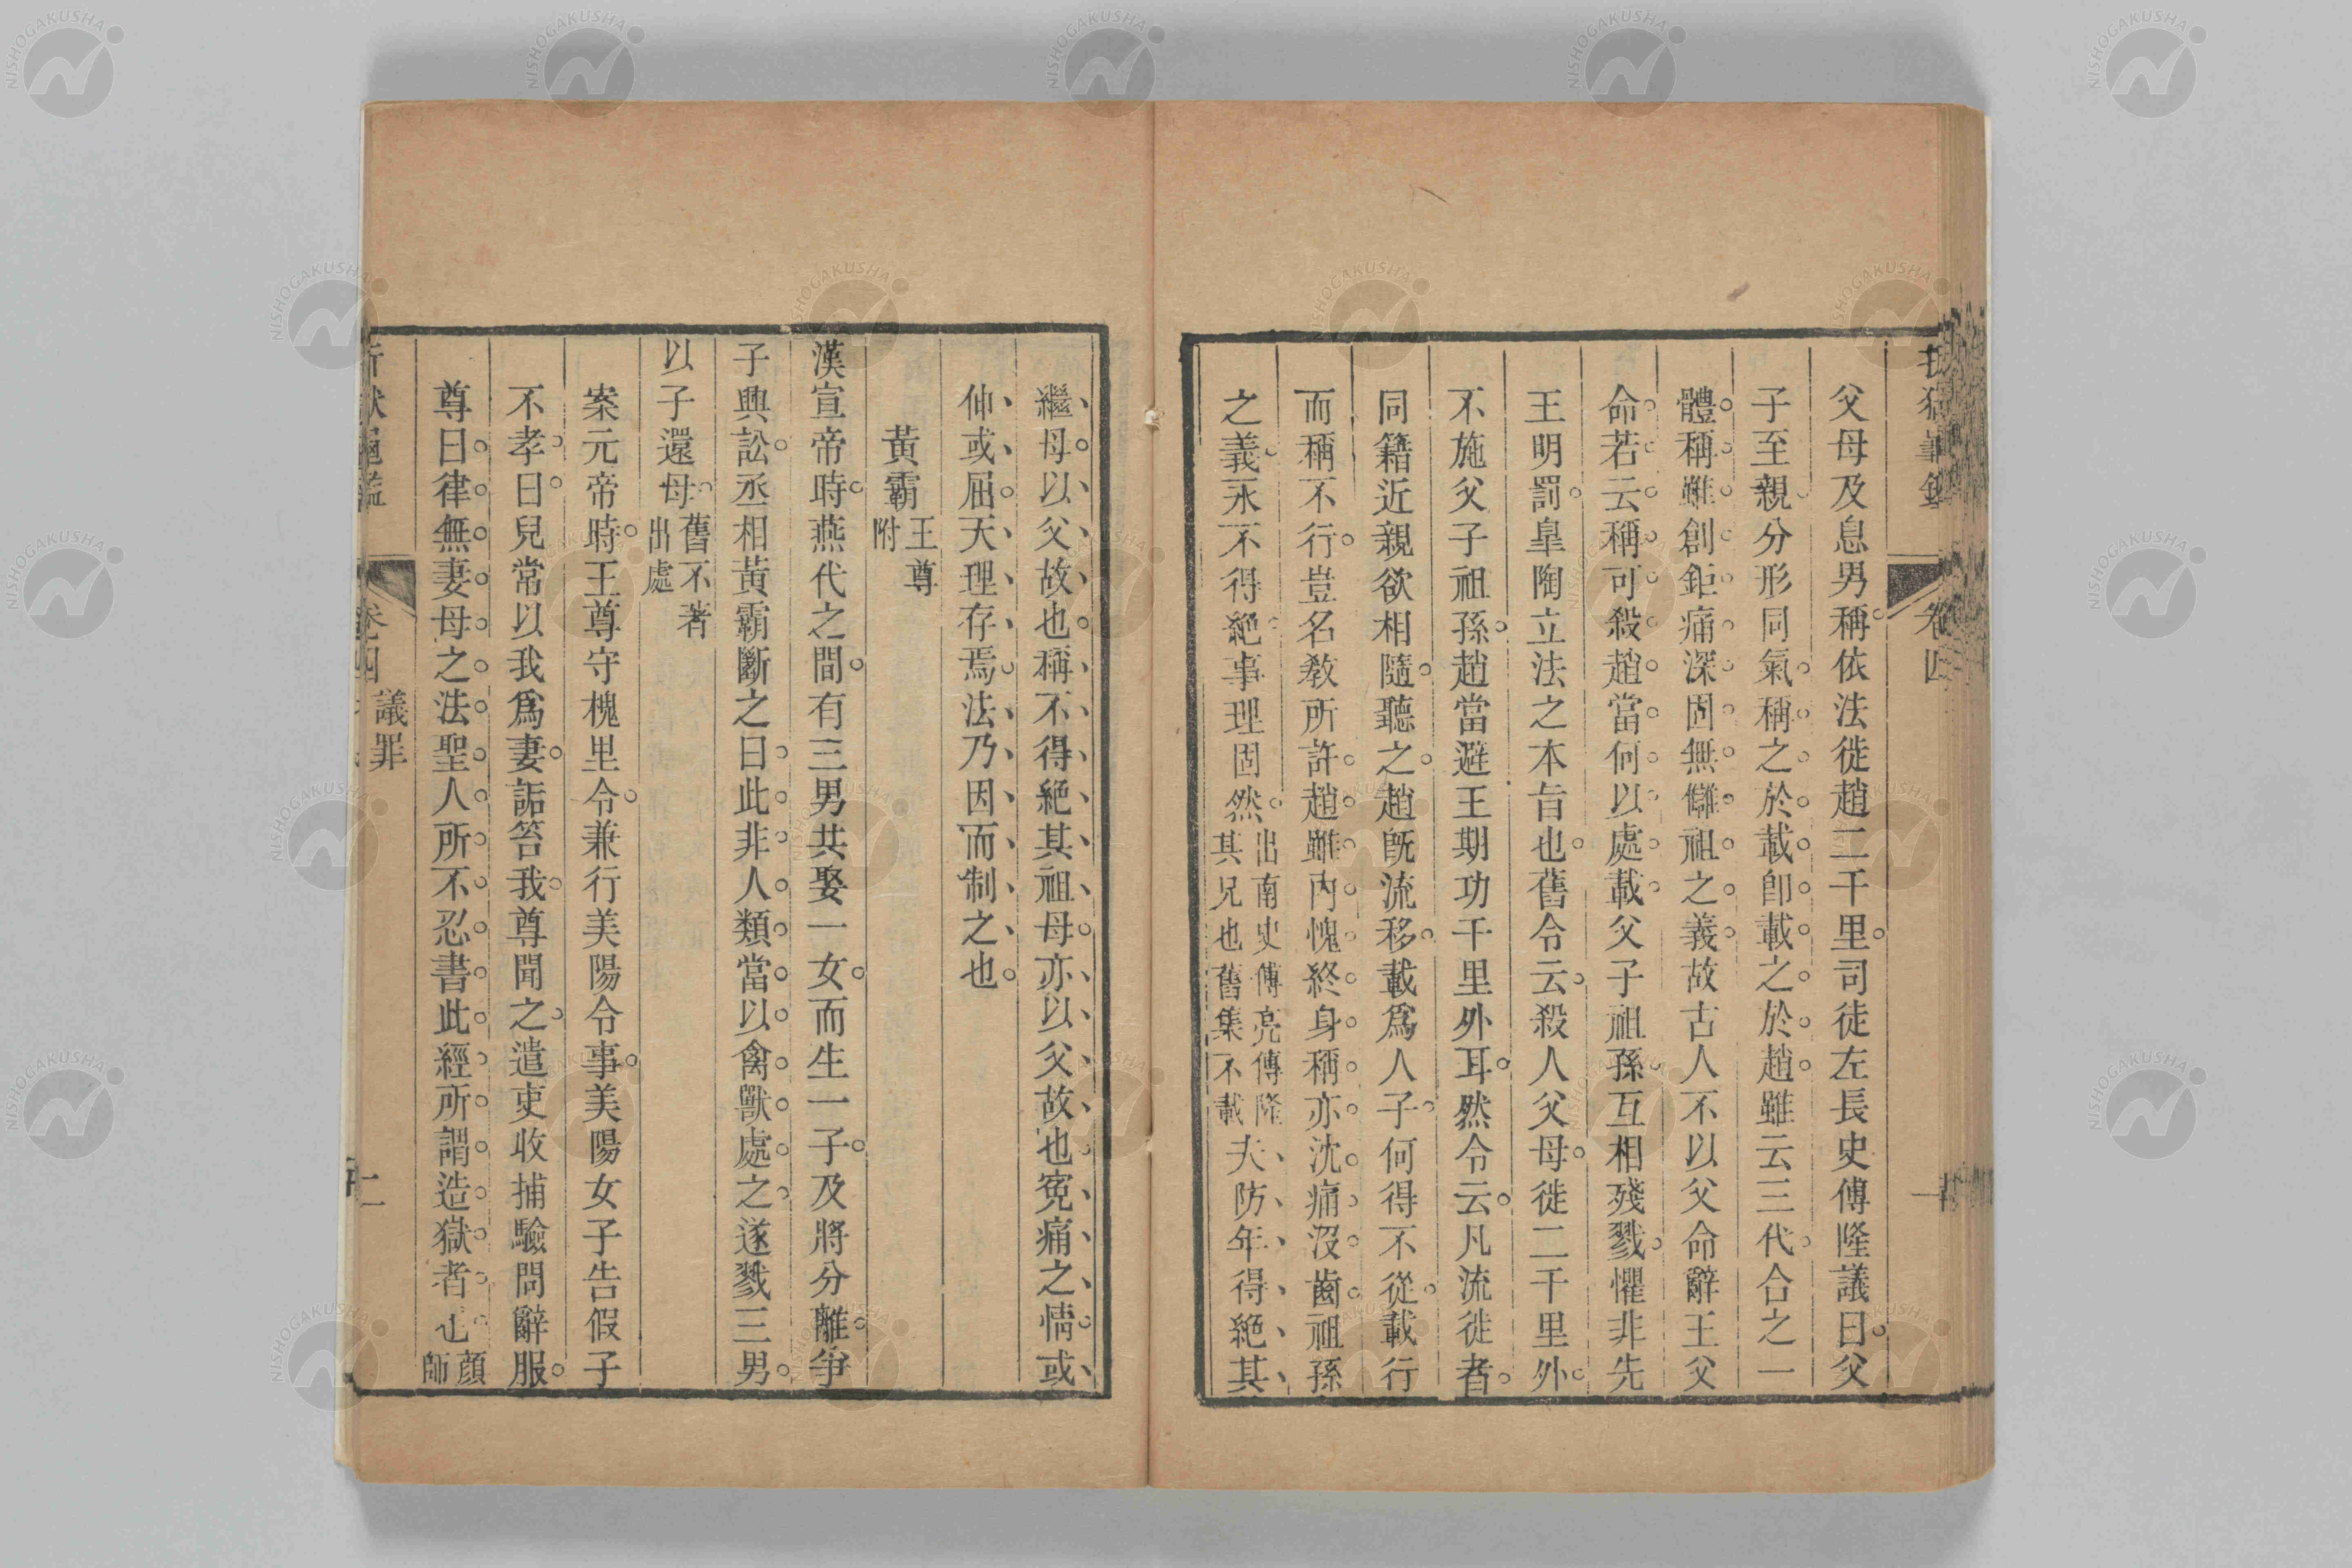 父母及息男稱。依法徙趙二千里。司徒左長史傅隆議曰。父
子至親。分形同氣。稱之於載。即載之於趙。雖云三代。合之一
體。稱雖創鉅痛深。固無讎祖之義。故古人不以父命辭王父
命。若云稱可殺趙。當何以處載。父子祖孫互相殘戮。懼非先
王明罰。皐陶立法之本旨也。舊令云。殺人父母。徙二千里外。
不施父子祖孫。趙當避王期功千里外耳。然令云。凡流徙者。
同籍近親欲相隨。聽之。趙既流移。載爲人子。何得不從。載行
而稱不行。豈名教所許。趙雖內愧終身。稱亦沈痛沒齒。祖孫
之義。永不得絕。事理固然。出南史傅亮傳隆
其兄也舊集不載夫、防、年、得、絕、其、
繼、母。以、父、故、也。稱、不、得、絕、其、祖、母。亦、以、父、故、也。寃、痛、之、情。或、
伸、或、屈。天、理、存、焉。法、乃、因、而、制、之、也。
黃霸王尊
附
漢宣帝時。燕代之間。有三男共娶一女。而生一子。及將分離。爭
子興訟。丞相黃霸斷之曰。此非人類。當以禽獸處之。遂戮三男。
以子還母。舊不著
出處
案元帝時。王尊守槐里令。兼行美陽令事。美陽女子告假子
不孝。曰。兒常以我爲妻。詬笞我。尊聞之。遣吏收捕驗問辭服。
尊曰。律無妻母之法。聖人所不忍書。此經所謂造獄者也。顏
師
卷四
議罪
二
卷四